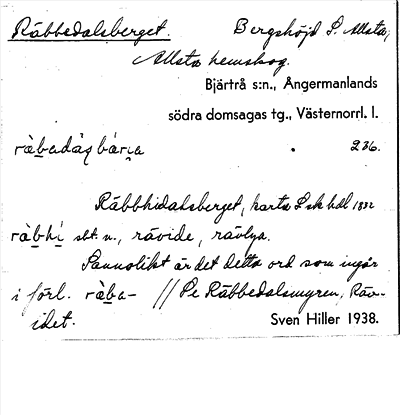 Räbbedalsberget. Bergshöjd S. Allsta,
Allsta hemskog.
Bjärtrå s:n., Ångermanlands
södra domsagas tg., Västernorrl. l.
236.
Räbbhidalsberget, karta
slt. n., rävide, rävlya.
Sannolikt är det detta ord som ingår
i förl. // Se Räbbedalsmyren, Räv-
idet.
Sven Hiller 1938.